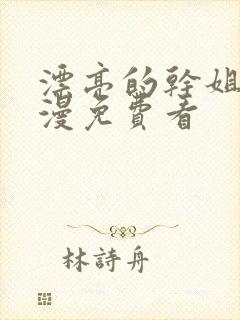 漂亮的幹姐
漫免費看
林詩舟